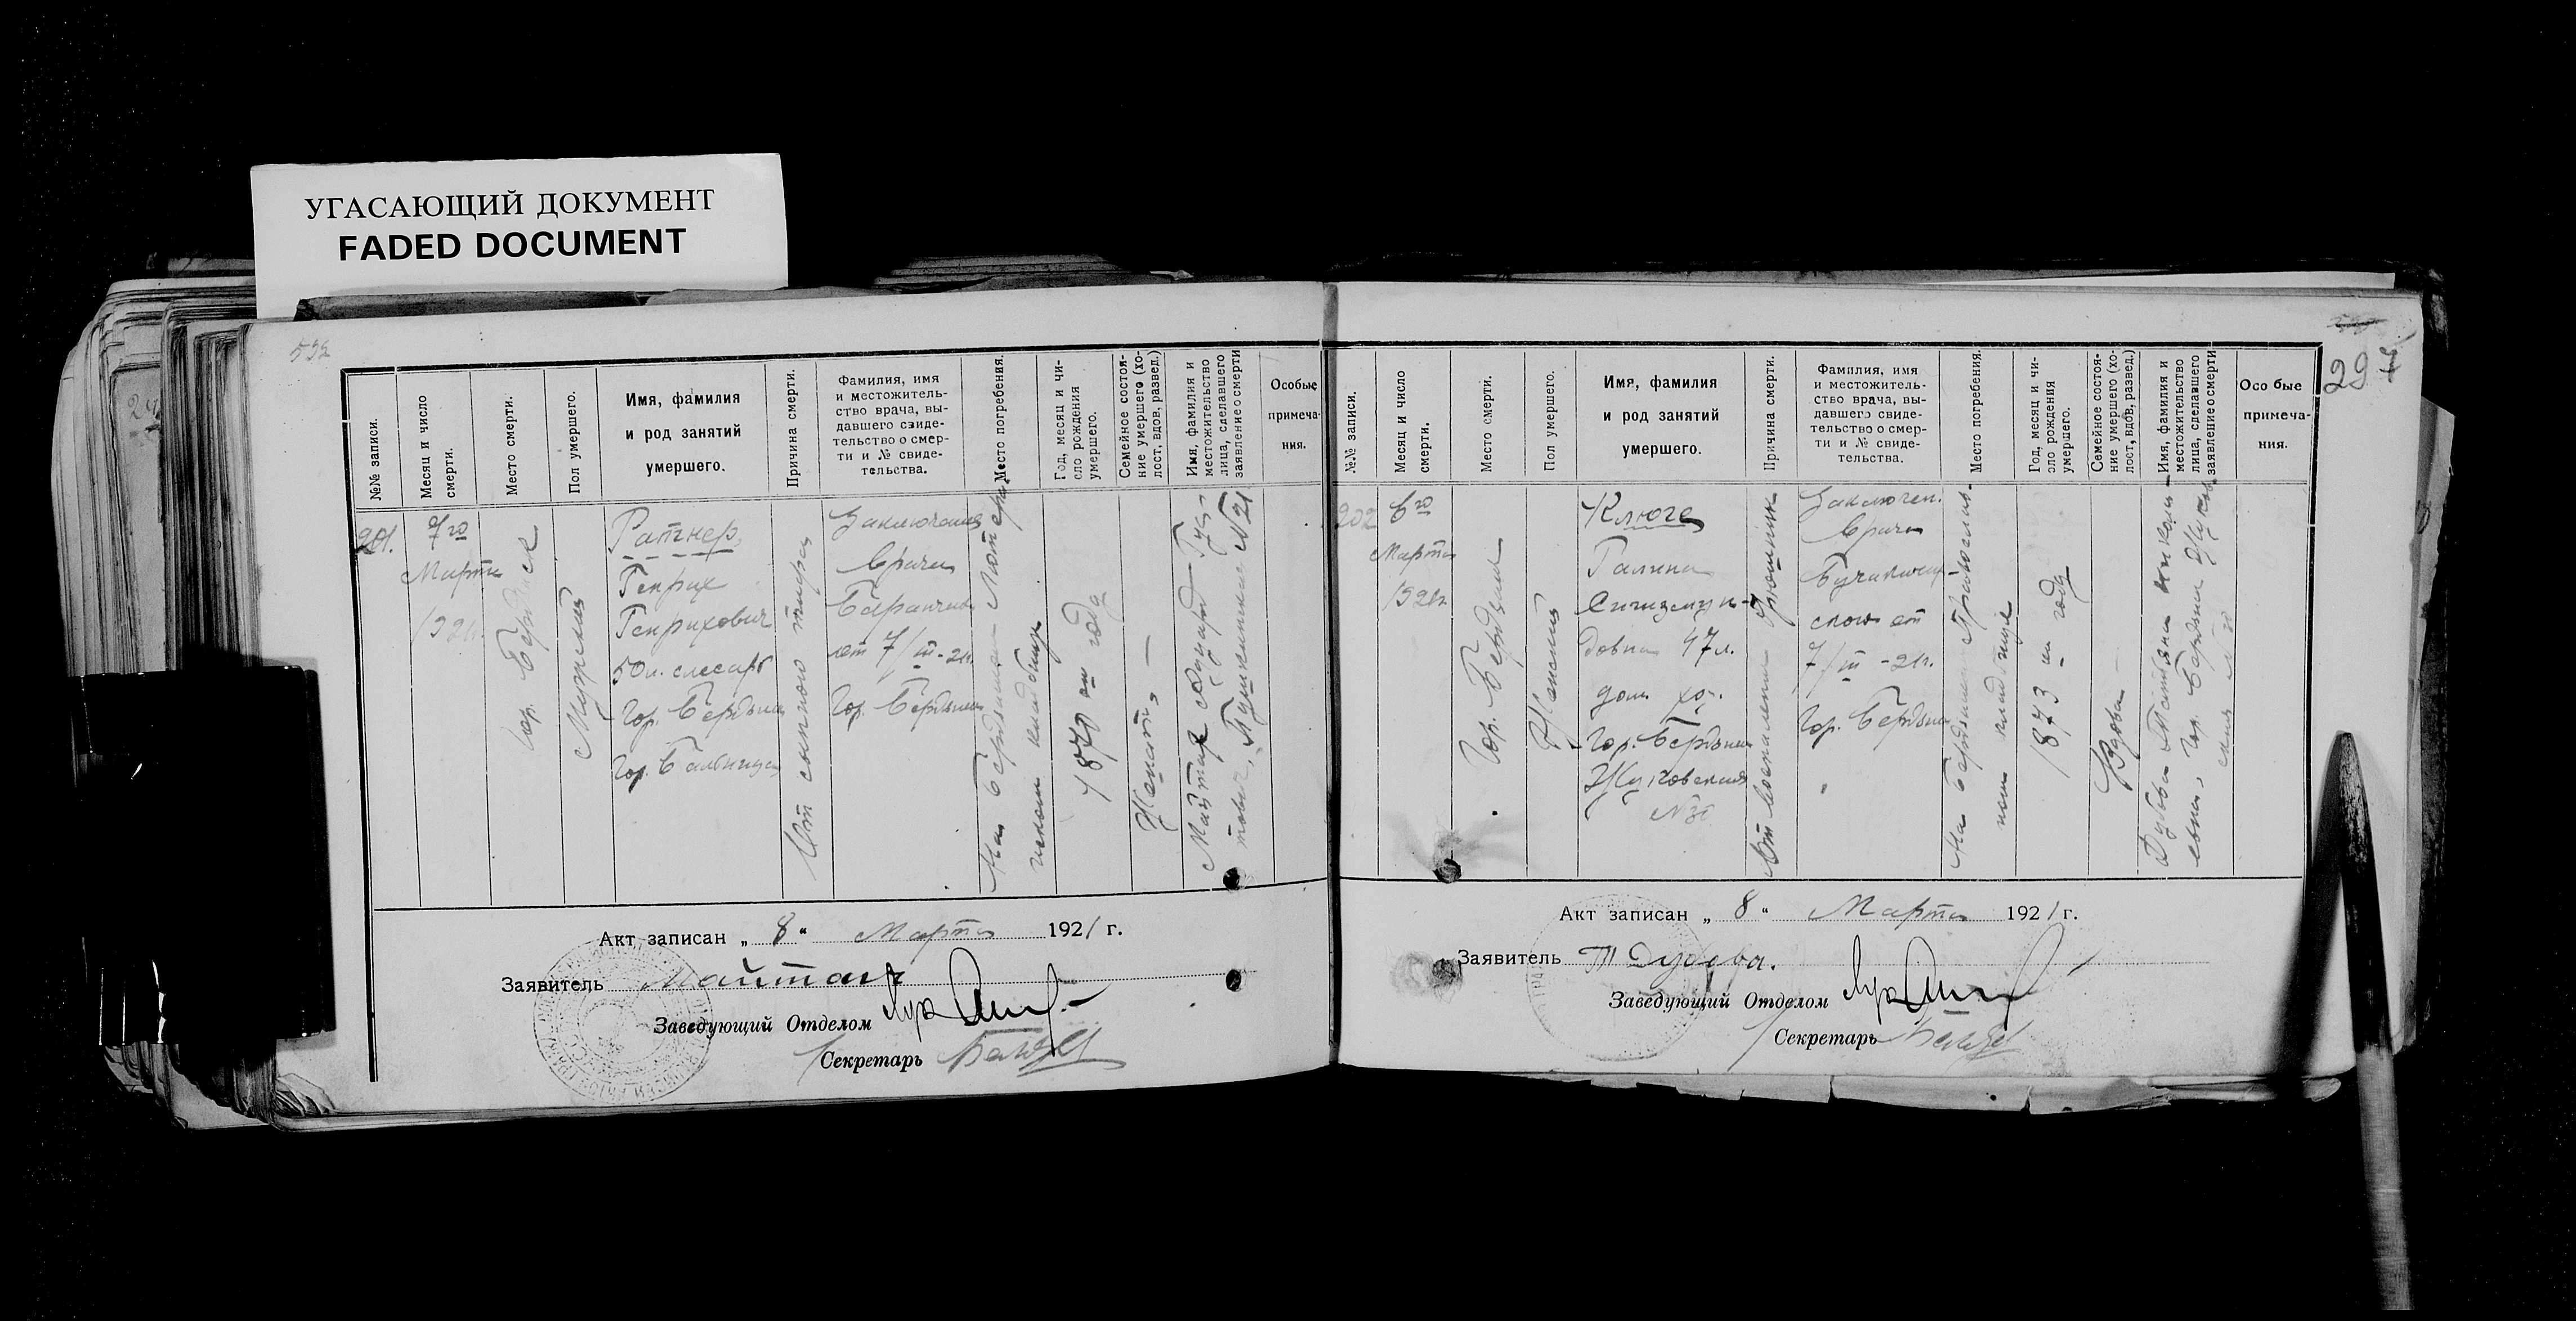 УГАСАЮЩИЙ ДОКУМЕНТ
FADED DOCUMENT
532
№№ записи.
Месяц и число смерти.
Место смерти.
Пол умершего.
Имя, фамилия
и род занятий
умершего.
Причина смерти.
Фамилия, имя
и местожитель-
ство врача, вы-
давшего свиде-
тельство о смер-
ти и № свиде-
тельства.
Место погребения.
Год, месяц и чи-
сло рождения
умершего.
Семейное состоя-
ние умершего (хо-
лост, вдов, развед.)
Имя, фамилия и
местожительство
лица, сделавшего
заявление о смерти
Особые
примеча-
ния.
201.
7го
Марта
1921г.
Гор. Бердянск
Мужской
Ратнер
Генрих
Генрихович
50л. слесарь
Гор. Бердянск
Гор. Больница
От сыпного тифа
Заключение
врача
от 7/III-21г.
Гор. Бердянск
На Бердянском Лютеран-
ском кладбище
1870 году
Женат
Майтак Эдуард
Пушкинская №21
Акт записан „ 8 “ Марта 1921 г.
Заявитель
Заведующий Отделом
Секретарь
297
№№ записи.
Месяц и число
смерти.
Место смерти.
Пол умершего.
Имя, фамилия
и род занятий
умершего.
Причина смерти.
Фамилия, имя
и местожитель-
ство врача, вы-
давшего свиде-
тельство о смер-
ти и № свиде-
тельства.
Место погребения.
Год, месяц и чи-
сло рождения
умершего.
Семейное состоя-
ние умершего (хо-
лост, вдов, развед.)
Имя, фамилия и
местожительство
лица, сделавшего
заявление о смерти
Особые
примеча-
ния.
202
6го
Марта
1921г.
Гор. Бердянск
Женский
Клюге
Галина
Сигизмун-
довна 47л.
дом. хоз.
Гор. Бердянск
Жуковская
От воспаления брюшины
Заключен.
врача
от
7/III-21г.
Гор. Бердянск
На Бердянском Православ-
ном кладбище
1873 году
Вдова
Дубова Татьяна Никола-
евна, гор. Бердянск Жуков-
ская
Акт записан „ 8 “ Марта 1921 г.
Заявитель Т Дубова.
Заведующий Отделом
Секретарь